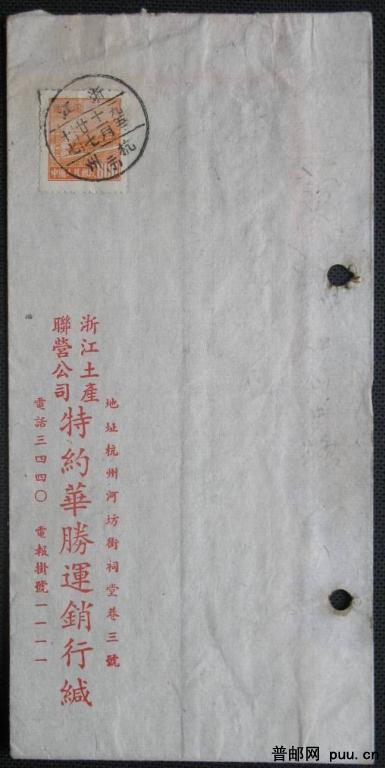 浙江
杭州
中華人民郵政
地址杭州河坊街祠堂巷三號
浙江土產
聯營公司
特約華勝運銷行緘
電話三四四〇 電報掛號一一一一
普邮网 puu.cn